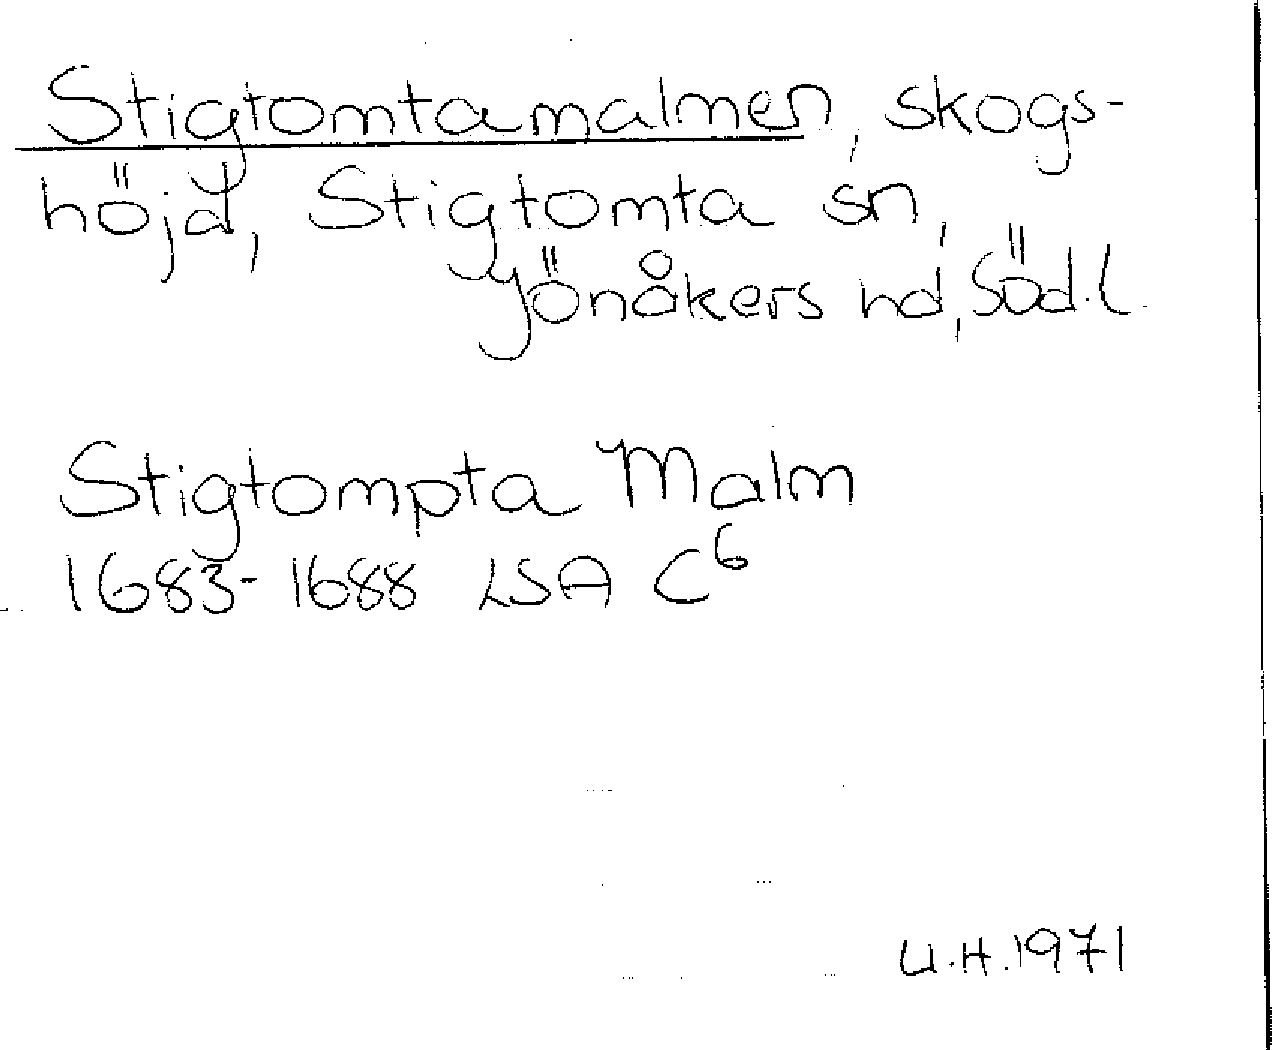 Stigtomtamalmen, skogs-
höjd, Stigtomta sn,
Jönåkers hd, Söd.l.
Stigtompta Malm
1683-1688 LSA C⁶
U.H.1971